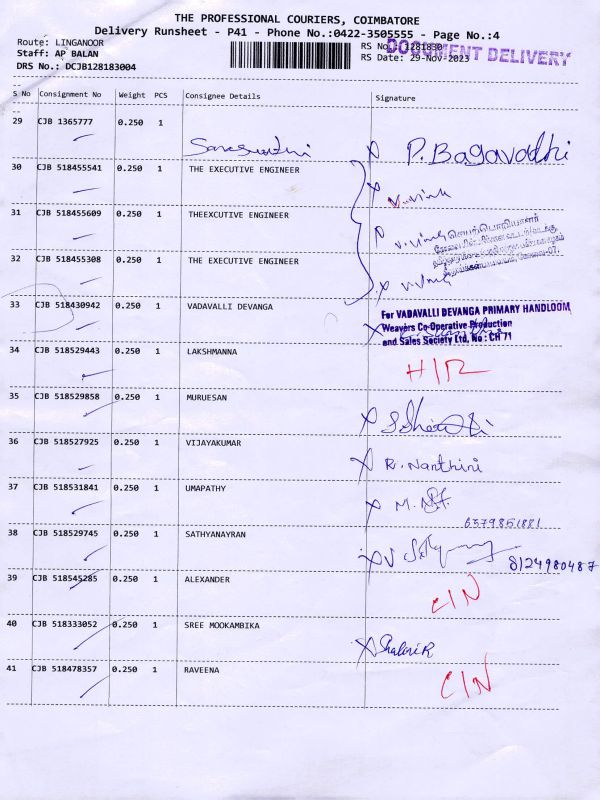 THE PROFESSIONAL COURIERS, COIMBATORE
Delivery Runsheet - P41 - Phone No.:0422-3505555 - Page No.:4
Route: LINGANOOR
Staff: AP BALAN
DRS No.: DCJB128183004
RS No.: 1281830
DOCUMENT DELIVERY
RS Date: 29-Nov-2023
S No Consignment No Weight PCS Consignee Details Signature
29 CJB 1365777 0.250 1
Saraswathi P. Bagavadhi
30 CJB 518455541 0.250 1 THE EXECUTIVE ENGINEER
31 CJB 518455609 0.250 1 THEEXCUTIVE ENGINEER
32 CJB 518455308 0.250 1 THE EXECUTIVE ENGINEER
33 CJB 518430942 0.250 1 VADAVALLI DEVANGA
For VADAVALLI DEVANGA PRIMARY HANDLOOM
Weavers Co-Operative Production
and Sales Society Ltd, No : CH 71
34 CJB 518529443 0.250 1 LAKSHMANNA
35 CJB 518529858 0.250 1 MURUESAN
36 CJB 518527925 0.250 1 VIJAYAKUMAR
R. Nanthini
37 CJB 518531841 0.250 1 UMAPATHY
6379851881
38 CJB 518529745 0.250 1 SATHYANAYRAN
8124980487
39 CJB 518545285 0.250 1 ALEXANDER
CIN
40 CJB 518333052 0.250 1 SREE MOOKAMBIKA
Shalini R
41 CJB 518478357 0.250 1 RAVEENA
CIN